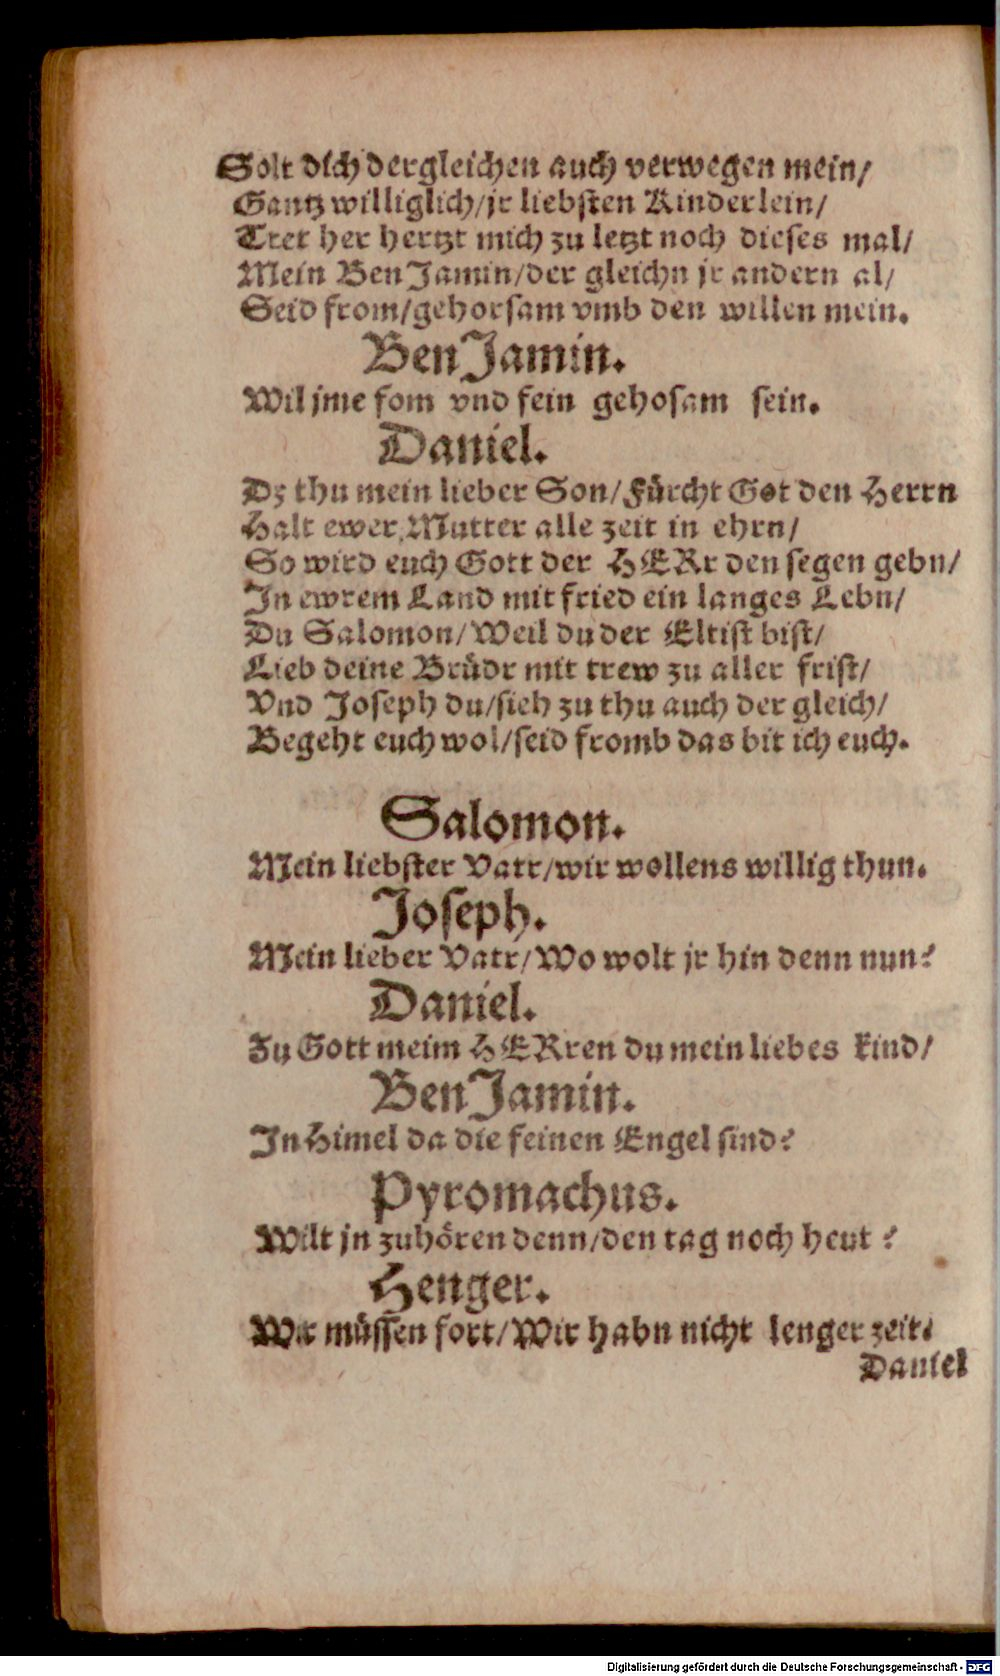 Solt dich dergleichen auch verwegen mein/
Gantz williglich/jr liebsten Kinderlein/
Tret her hertzt mich zu letzt noch dieses mal/
Mein Ben Jamin/der gleichn jr andern al/
Seid from/gehorsam vmb den willen mein.
Ben Jamin.
Wil jme fom vnd fein gehosam sein.
Daniel.
Dz thu mein lieber Son/Fürcht Got den Herrn
Halt ewer Mutter alle zeit in ehrn/
So wird euch Gott der HERr den segen gebn/
In ewrem Land mit fried ein langes Lebn/
Du Salomon/Weil du der Eltist bist/
Lieb deine Brüdr mit trew zu aller frist/
Vnd Joseph du/sieh zu thu auch der gleich/
Begeht euch wol/seid fromb das bit ich euch.
Salomon.
Mein liebster Vatr/wir wollens willig thun.
Joseph.
Mein lieber Vatr/Wo wolt jr hin denn nun?
Daniel.
Zu Gott meim HERren du mein liebes kind/
Ben Jamin.
In Himel da die feinen Engel sind?
Pyromachus.
Wilt jn zuhören denn/den tag noch heut ?
Henger.
Wir müssen fort/Wir habn nicht lenger zeit.
Daniel
Digitalisierung gefördert durch die Deutsche Forschungsgemeinschaft - DFG